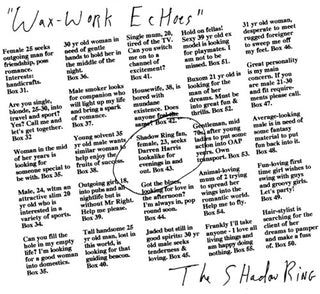 "Wax-Work Echoes"
Female 25 seeks
outgoing man for
friendship, poss
romance.
Interests:
handicrafts.
Box 31.
Are you single,
blonde, 25-30, into
travel and sport?
Yes? Call me and
let's get together.
Box 32
Woman in the mid
of her years is
looking for
someone special to
be with. Box 35.
Male, 24, witn an
attractive slim 20
yr old who is
interested in a
variety of sports.
Box 34.
Can you fill the
hole in my empty
life? I'm looking
for a good woman
into domestics.
Box 35.
30 yr old woman in
need of gentle
hands to hold her in
the middle of the
night.
Box 36.
Male smoker looks
for companion who
will light up my life
and bring a spark
of romance.
Box 37.
Young solvent 35
yr old male wants
similar woman to
help enjoy the
fruits of success.
Box 38.
Outgoing girl, 18,
into pubs and all
nighters
without Mr Right.
Help me please.
Box 39.
Tall handsome 25
yr old man, lost in
this world, is
looking for that
guiding beacon.
Box 40.
Single mum, 20,
tired of the TV.
Can you switch
me on to a
channel of
excitement?
Box 41.
Housewife, 38, is
bored with
mundane
existence. Does
anyone
same? Box 42.
Shadow Ring fan,
female, 23, seeks
Darren Harris
lookalike for
evenings in and
out. Box 43.
Got the blues,
looking for love in
the afternoon?
I'm always in, pop
round.
Box 44.
Jaded but still in
good spirits: 30 yr
old male seeks
tenderness &
loving. Box 45.
Hold on fellas!
Sexy 39 yr old ex
model is looking
for playmates. I
am not to be
missed. Box 51.
Buxom 21 yr old is
looking for the
man of her
dreams. Must be
into great fun &
Box 52.
Gentleman, mid
70s, after young
ladies to put some
action into OAP
years. Own
transport. Box 53.
Animal-loving
mum of 2 trying
to spread her
wings into the
romantic world.
Help me to fly.
Box 54.
Frankly I'll take
anyone - I love all
living things and
am happy doing
nothing. Box 55.
31 yr old woman,
desperate to meet
rugged foreigner
to sweep me off
my feet. Box 46.
Great personality
is my main
concern. If you
are male 21-30
and fit require-
ments, please call.
Box 47.
Average-looking
male is in need of
some fantasy
material to put
fun back into it.
Box 48.
Fun-loving first
time girl wishes to
swing with guys
and groovy girls.
Let's party!
Box 49.
Hair-stylist is
searching for the
client of her
dreams to pamper
and make a fuss
of. Box 50.
The Shadow Ring